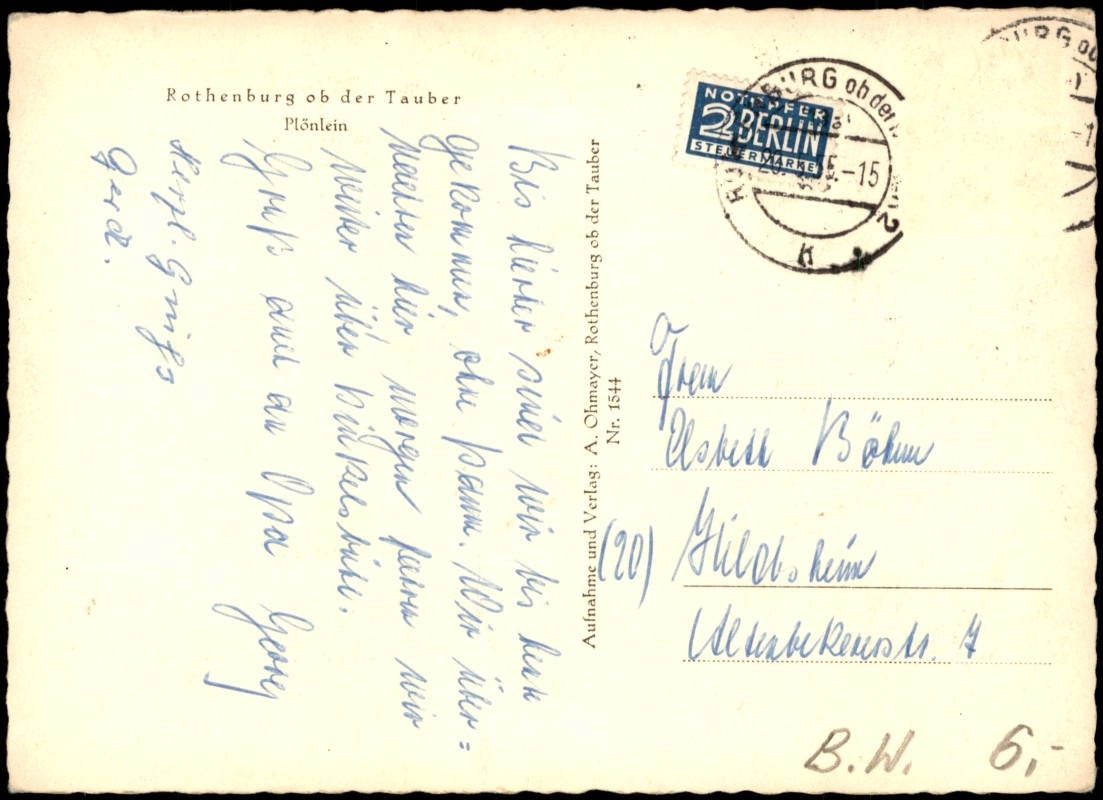 Rothenburg ob der Tauber
Plönlein
Bis hierher sind wir bis heute
gekommen, ohne Panne. Wir über=
nachten hier morgen fahren wir
weiter über Dinkelsbühl.
Gruß auch an Opa Georg
Herzl. Gruß
Gerd.
Aufnahme und Verlag: A. Ohmayer, Rothenburg ob der Tauber
Nr. 1544
NOTOPFER
2 BERLIN
STEUERMARKE
BURG ob der
-15
2
Frau
Elsbeth Böhm
(20) Hildesheim
Altenbekenerstr. 7
B.W. 6,-